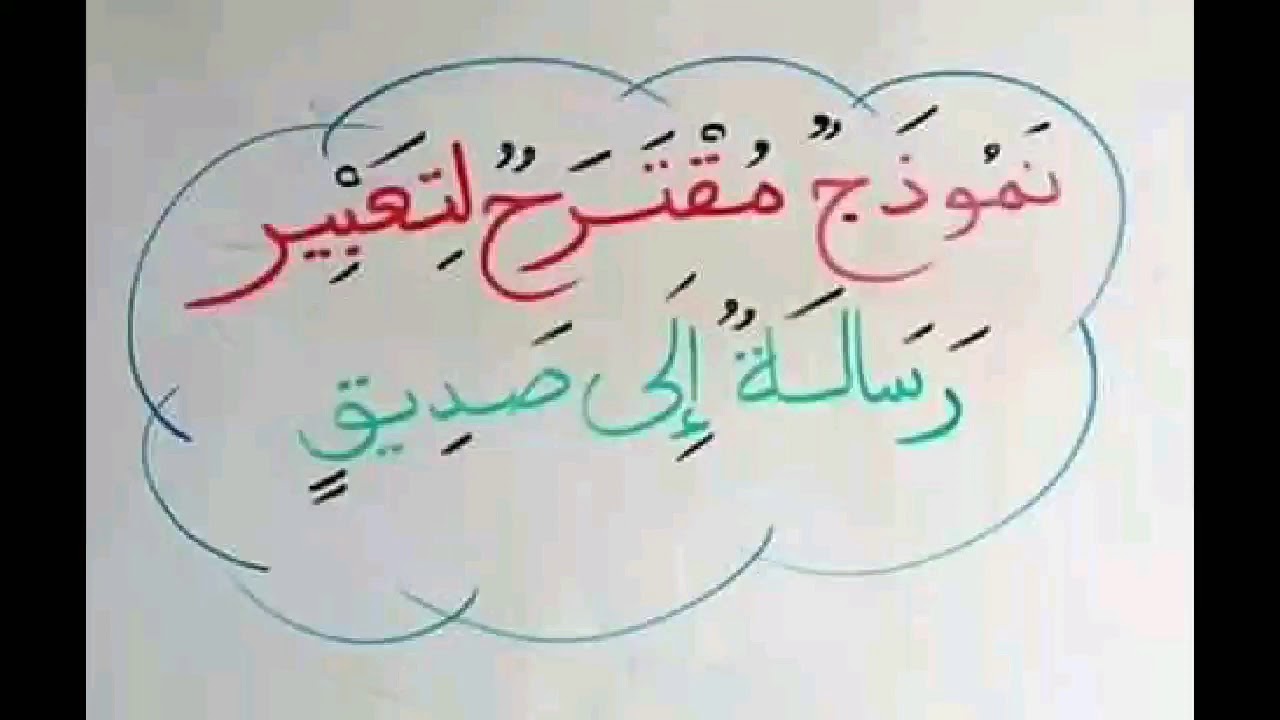 نَمُوذَجٌ مُقْتَرَحٌ لِتَعْبِيِر
رَسَالَةٌ إِلَى صَدِيقٍ